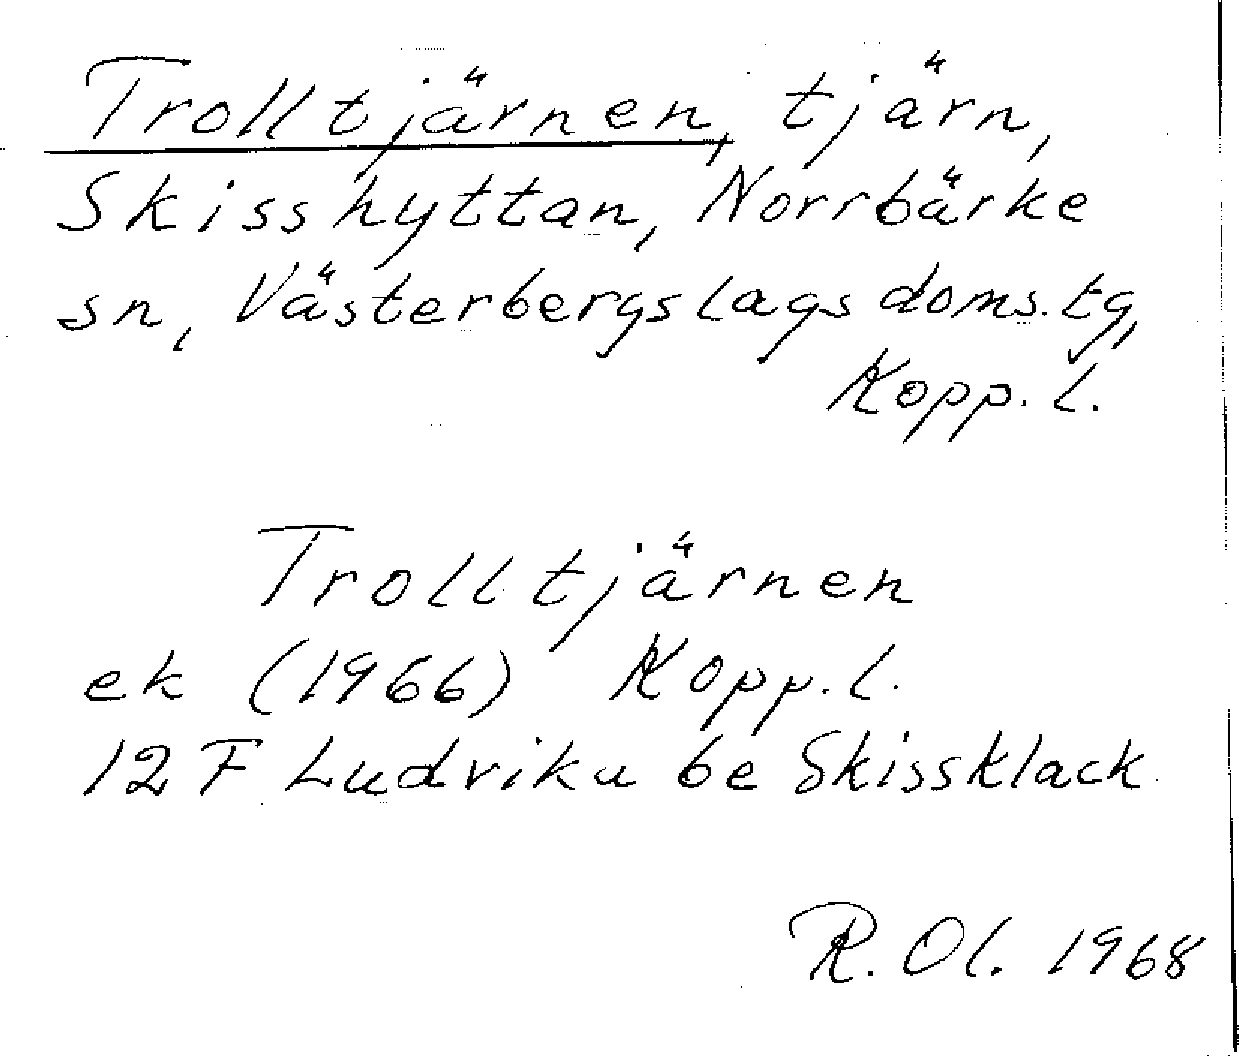 Trolltjärnen, tjärn,
Skisshyttan, Norrbärke
sn, Västerbergslags doms.tg,
Kopp. l.
Trolltjärnen
ek (1966) Kopp. l.
12 F Ludvika 6e Skissklack
R. Ol. 1968